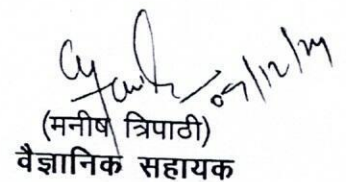 09/12/24
(मनीष त्रिपाठी)
वैज्ञानिक सहायक